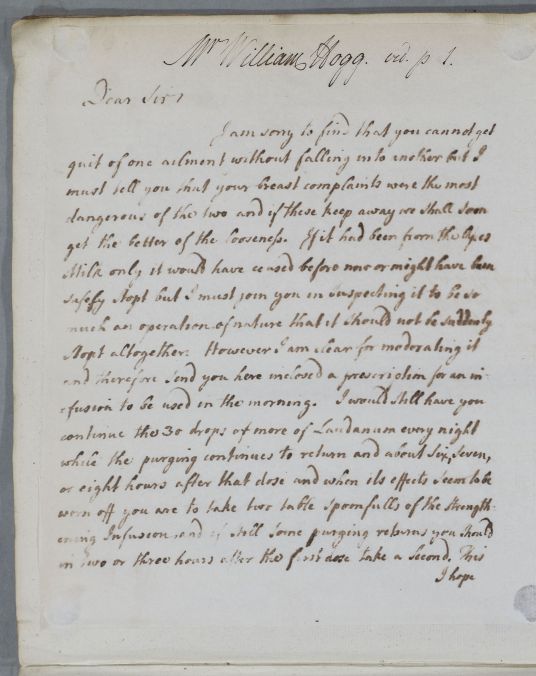 Mr William Hogg. vid. p 1.
Dear Sir
I am sorry to find that you cannot get
quit of one ailment without falling into another but I
must tell you that your breast complaints were the most
dangerous of the two and if these keep away we shall soon
get the better of the looseness. If it had been from the Asses
Milk only it would have ceased before now or might have been
safely stopt but I must join you in suspecting it to be so
much an operation of nature that it should not be suddenly
stopt altogether. However I am clear for moderating it
and therefore send you here inclosed a prescription for an in-
-fusion to be used in the morning. I would still have you
continue the 30 drops of more of Laudanum every night
while the purging continues to return and about six, seven,
or eight hours after that dose and when its effects seem to be
worn off you are to take two table spoonfulls of the strength-
ening Infusion and if still some purging returns you should
in two or three hours after the first dose take a second. This
I hope